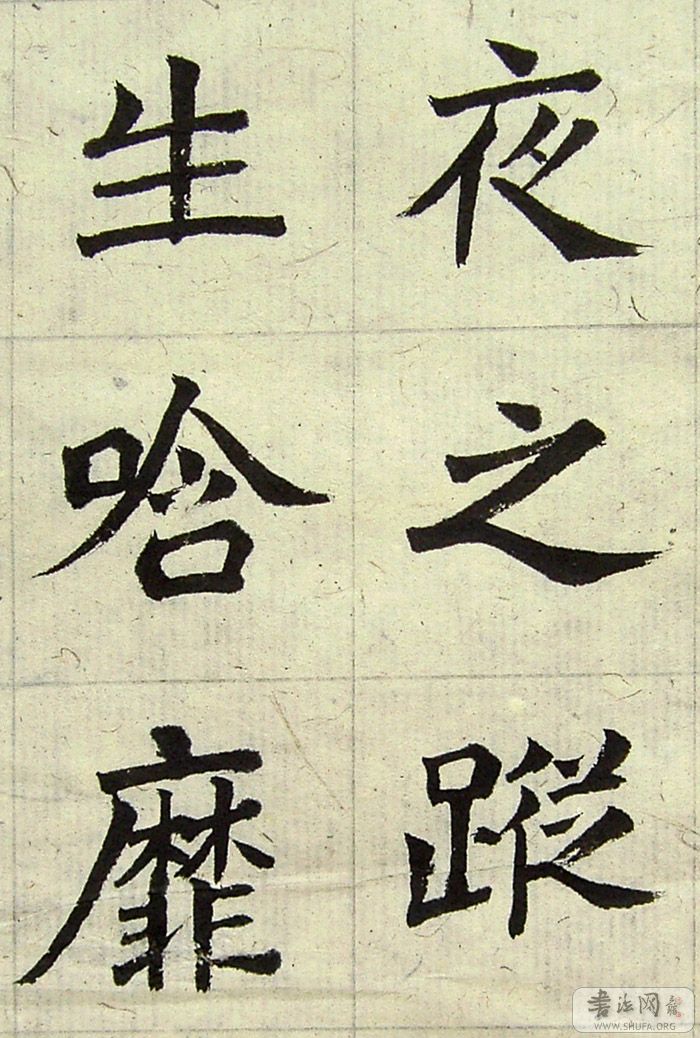 夜之蹤
生唅靡
書法网
WWW.SHUFA.ORG